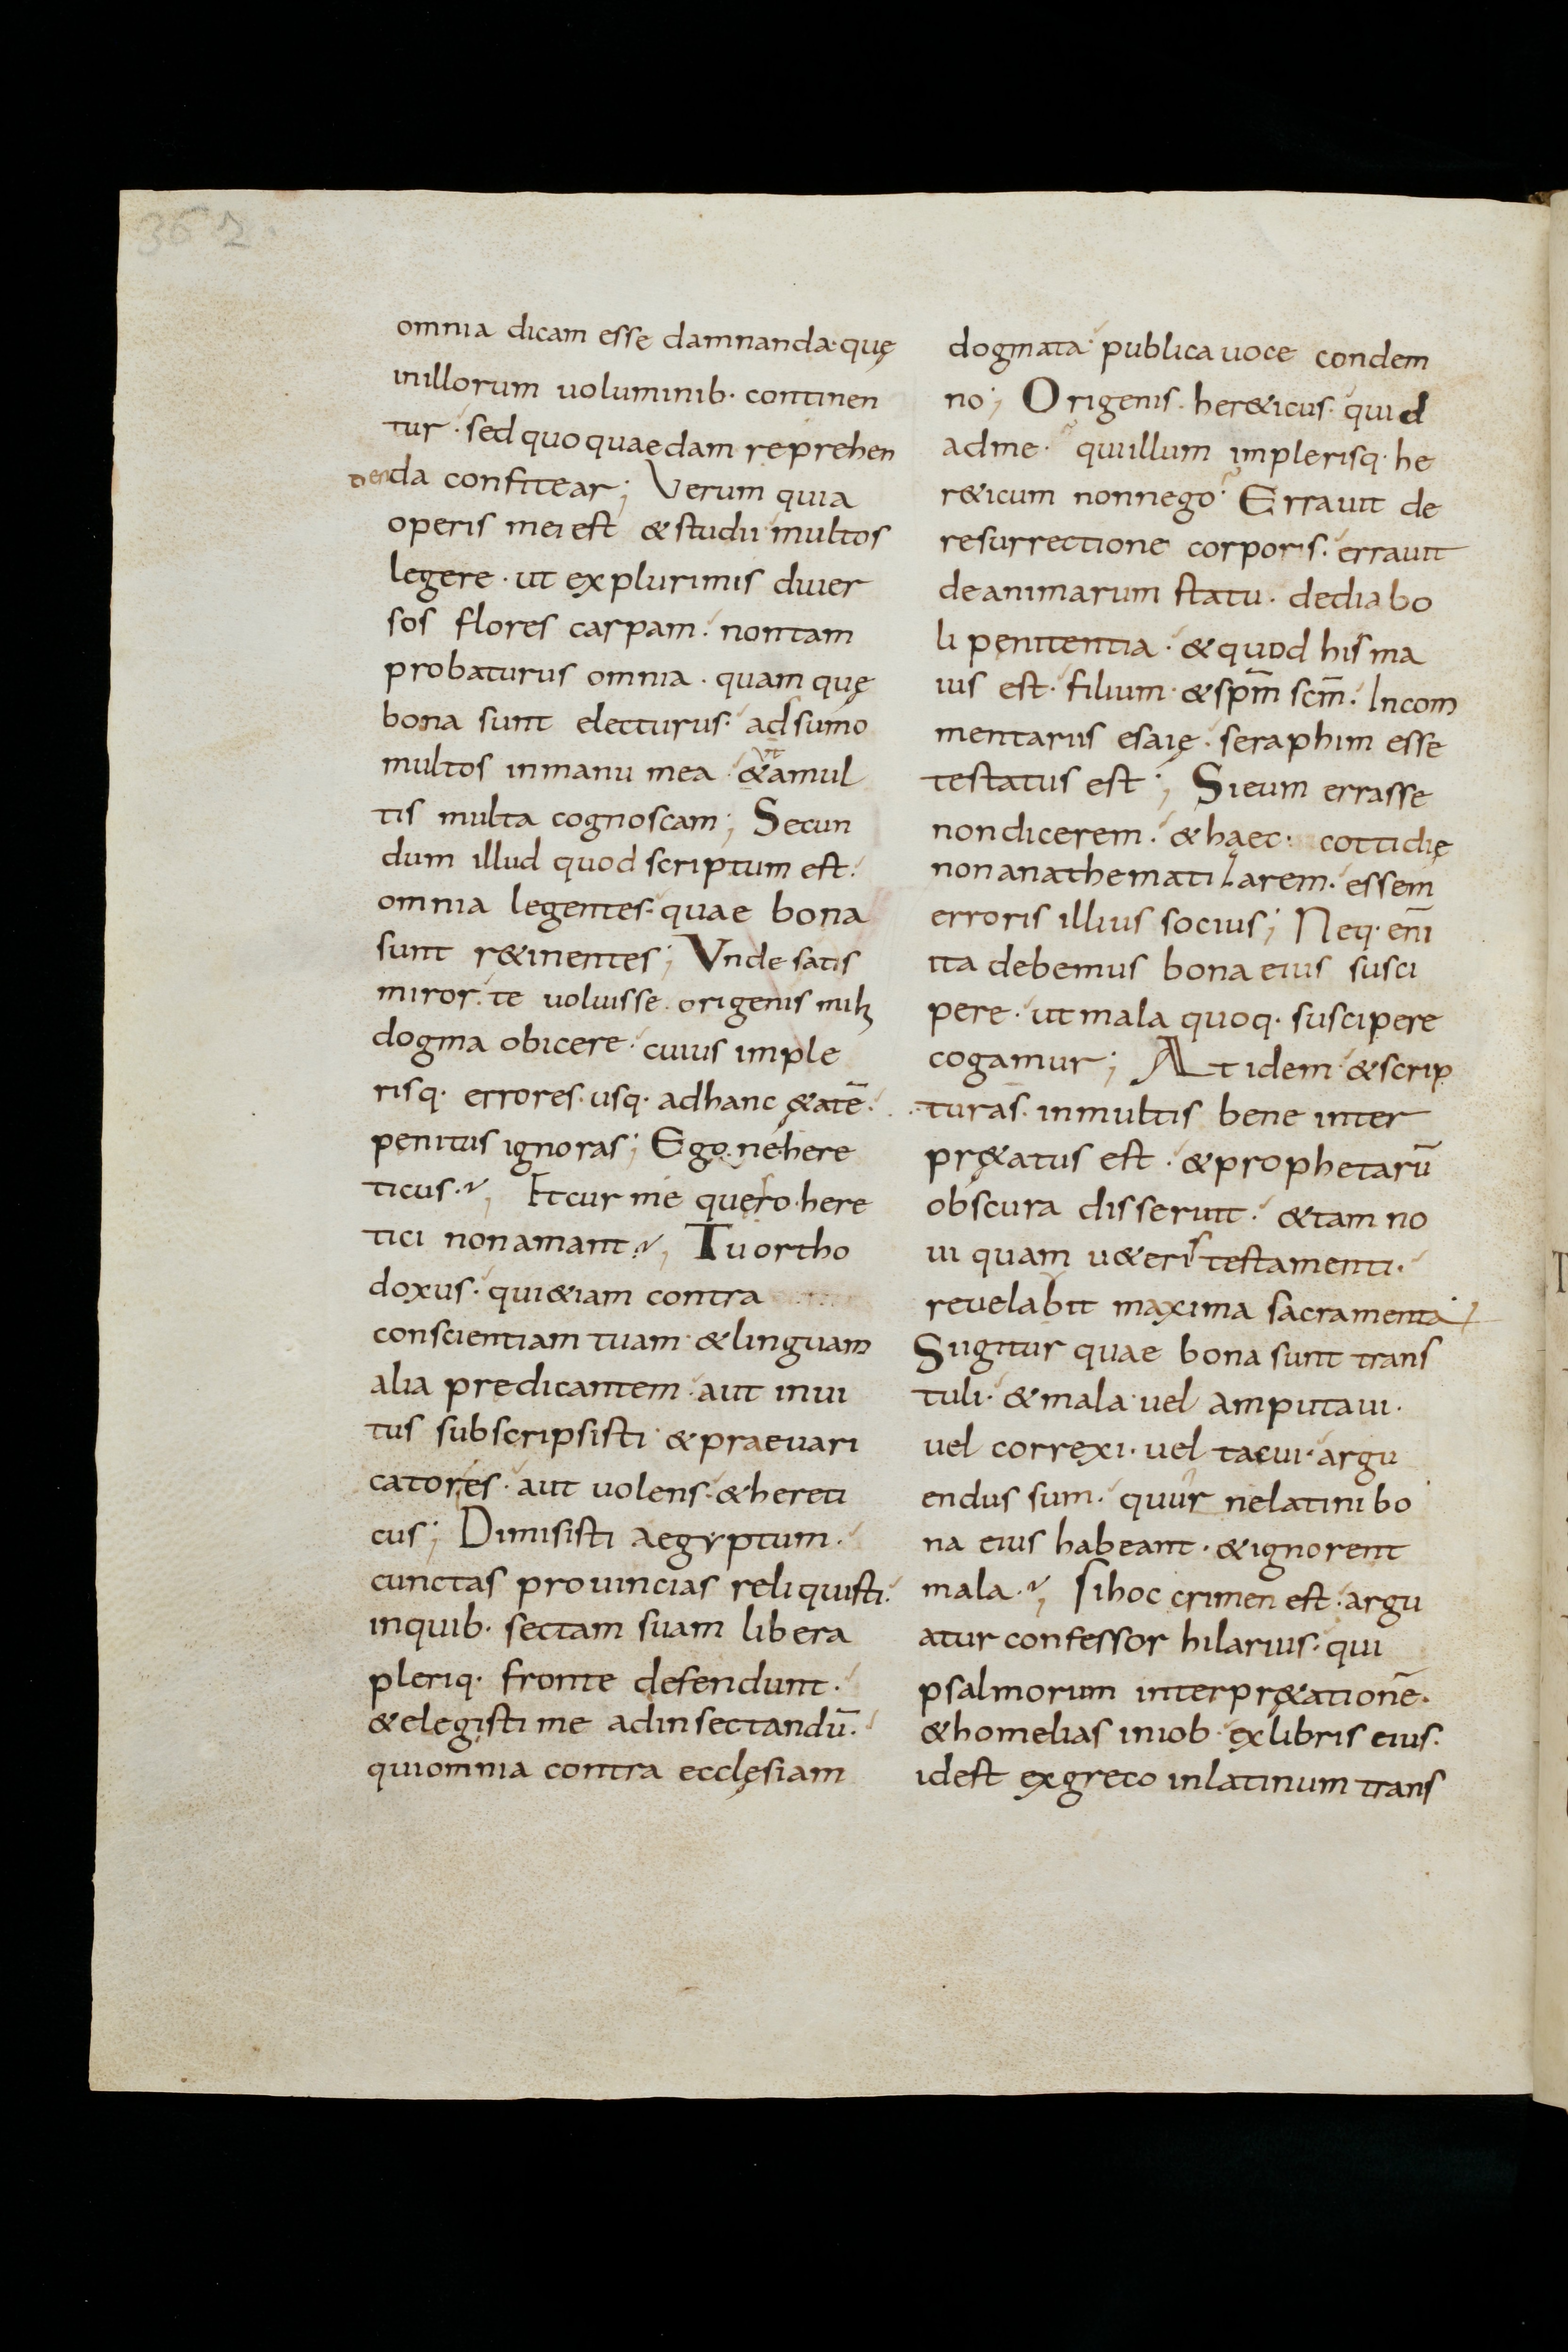 362
omnia dicam esse damnanda· quę
inillorum uoluminib· continen
tur · sed quo quaedam reprehen
denda confitear; Verum quia
operis mei est & studii multos
legere · ut ex plurimis diuer
sos flores carpam · nontam
probaturus omnia · quam quę
bona sunt electurus · adsumo
multos inmanu mea · ut &amul
tis multa cognoscam; Secun
dum illud quod scriptum est ·
omnia legentes · quae bona
sunt r&inentes; Vnde satis
miror · te uoluisse · origenis mihi
dogma obicere · cuius imple
risq· errores · usq· adhanc ę&atē ·
penitus ignoras; Ego · ne·here
ticus ·?; Et cur me quęso · here
tici non amant ?; Tu ortho
doxus · qui&iam contra
conscientiam tuam · &linguam
alia predicantem · aut inui
tus subscripsisti · &praeuari
catores · aut uolens · &hereti
cus; Dimisisti aegyptum ·
cunctas prouincias reliquisti ·
inquib· sectam suam libera
pleriq· fronte defendunt ·
&elegisti me adinsectandū ·
quiomnia contra ecclęsiam
dogmata · publica uoce condem
no; Origenis · her&icus · quid
adme · quiillum implerisq· he
r&icum nonnego · Errauit de
resurrectione corporis · errauit
deanimarum statu · dediabo
li penitentia · &quod his ma
ius est · filium · &spm̄ scm̄ · Incom
mentariis esaię · seraphim esse
testatus est ·; Si eum errasse
nondicerem · &haec · cottidię
nonanathematizarem · essem
erroris illius socius; Neq· enī
ita debemus bona eius susci
pere · ut mala quoq· suscipere
cogamur; At idem · &scrip
turas · inmultis bene inter
pr&atus est · &prophetarū
obscura disseruit · &tam no
ui quam u&eris testamenti ·
reuelabit maxima sacramenta
Siigitur quae bona sunt trans
tuli · &mala · uel amputaui ·
uel correxi · uel tacui · argu
endus sum · quur nelatini bo
na eius habeant · &ignorent
mala ·?; Sihoc crimen est · argu
atur confessor hilarius · qui
psalmorum interpr&ationē ·
&homelias iniob · exlibris eius ·
idest exgreco inlatinum trans